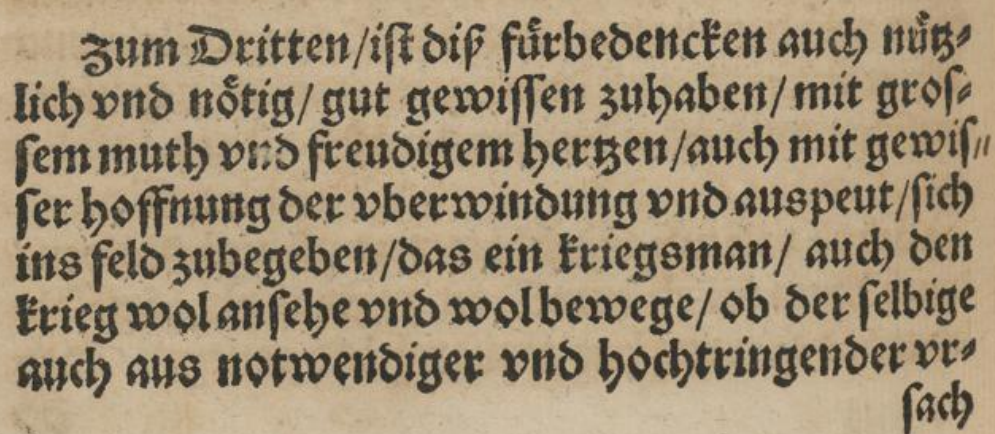 Zum Dritten/ist diß fürbedencken auch nütz⸗
lich vnd nötig/ gut gewissen zuhaben/ mit gros⸗
sem muth vnd freudigem hertzen/auch mit gewis⸗
ser hoffnung der vberwindung vnd auspeut/sich
ins feld zubegeben/das ein kriegsman/ auch den
krieg wol ansehe vnd wol bewege/ ob der selbige
auch aus notwendiger vnd hochtringender vr⸗
sach